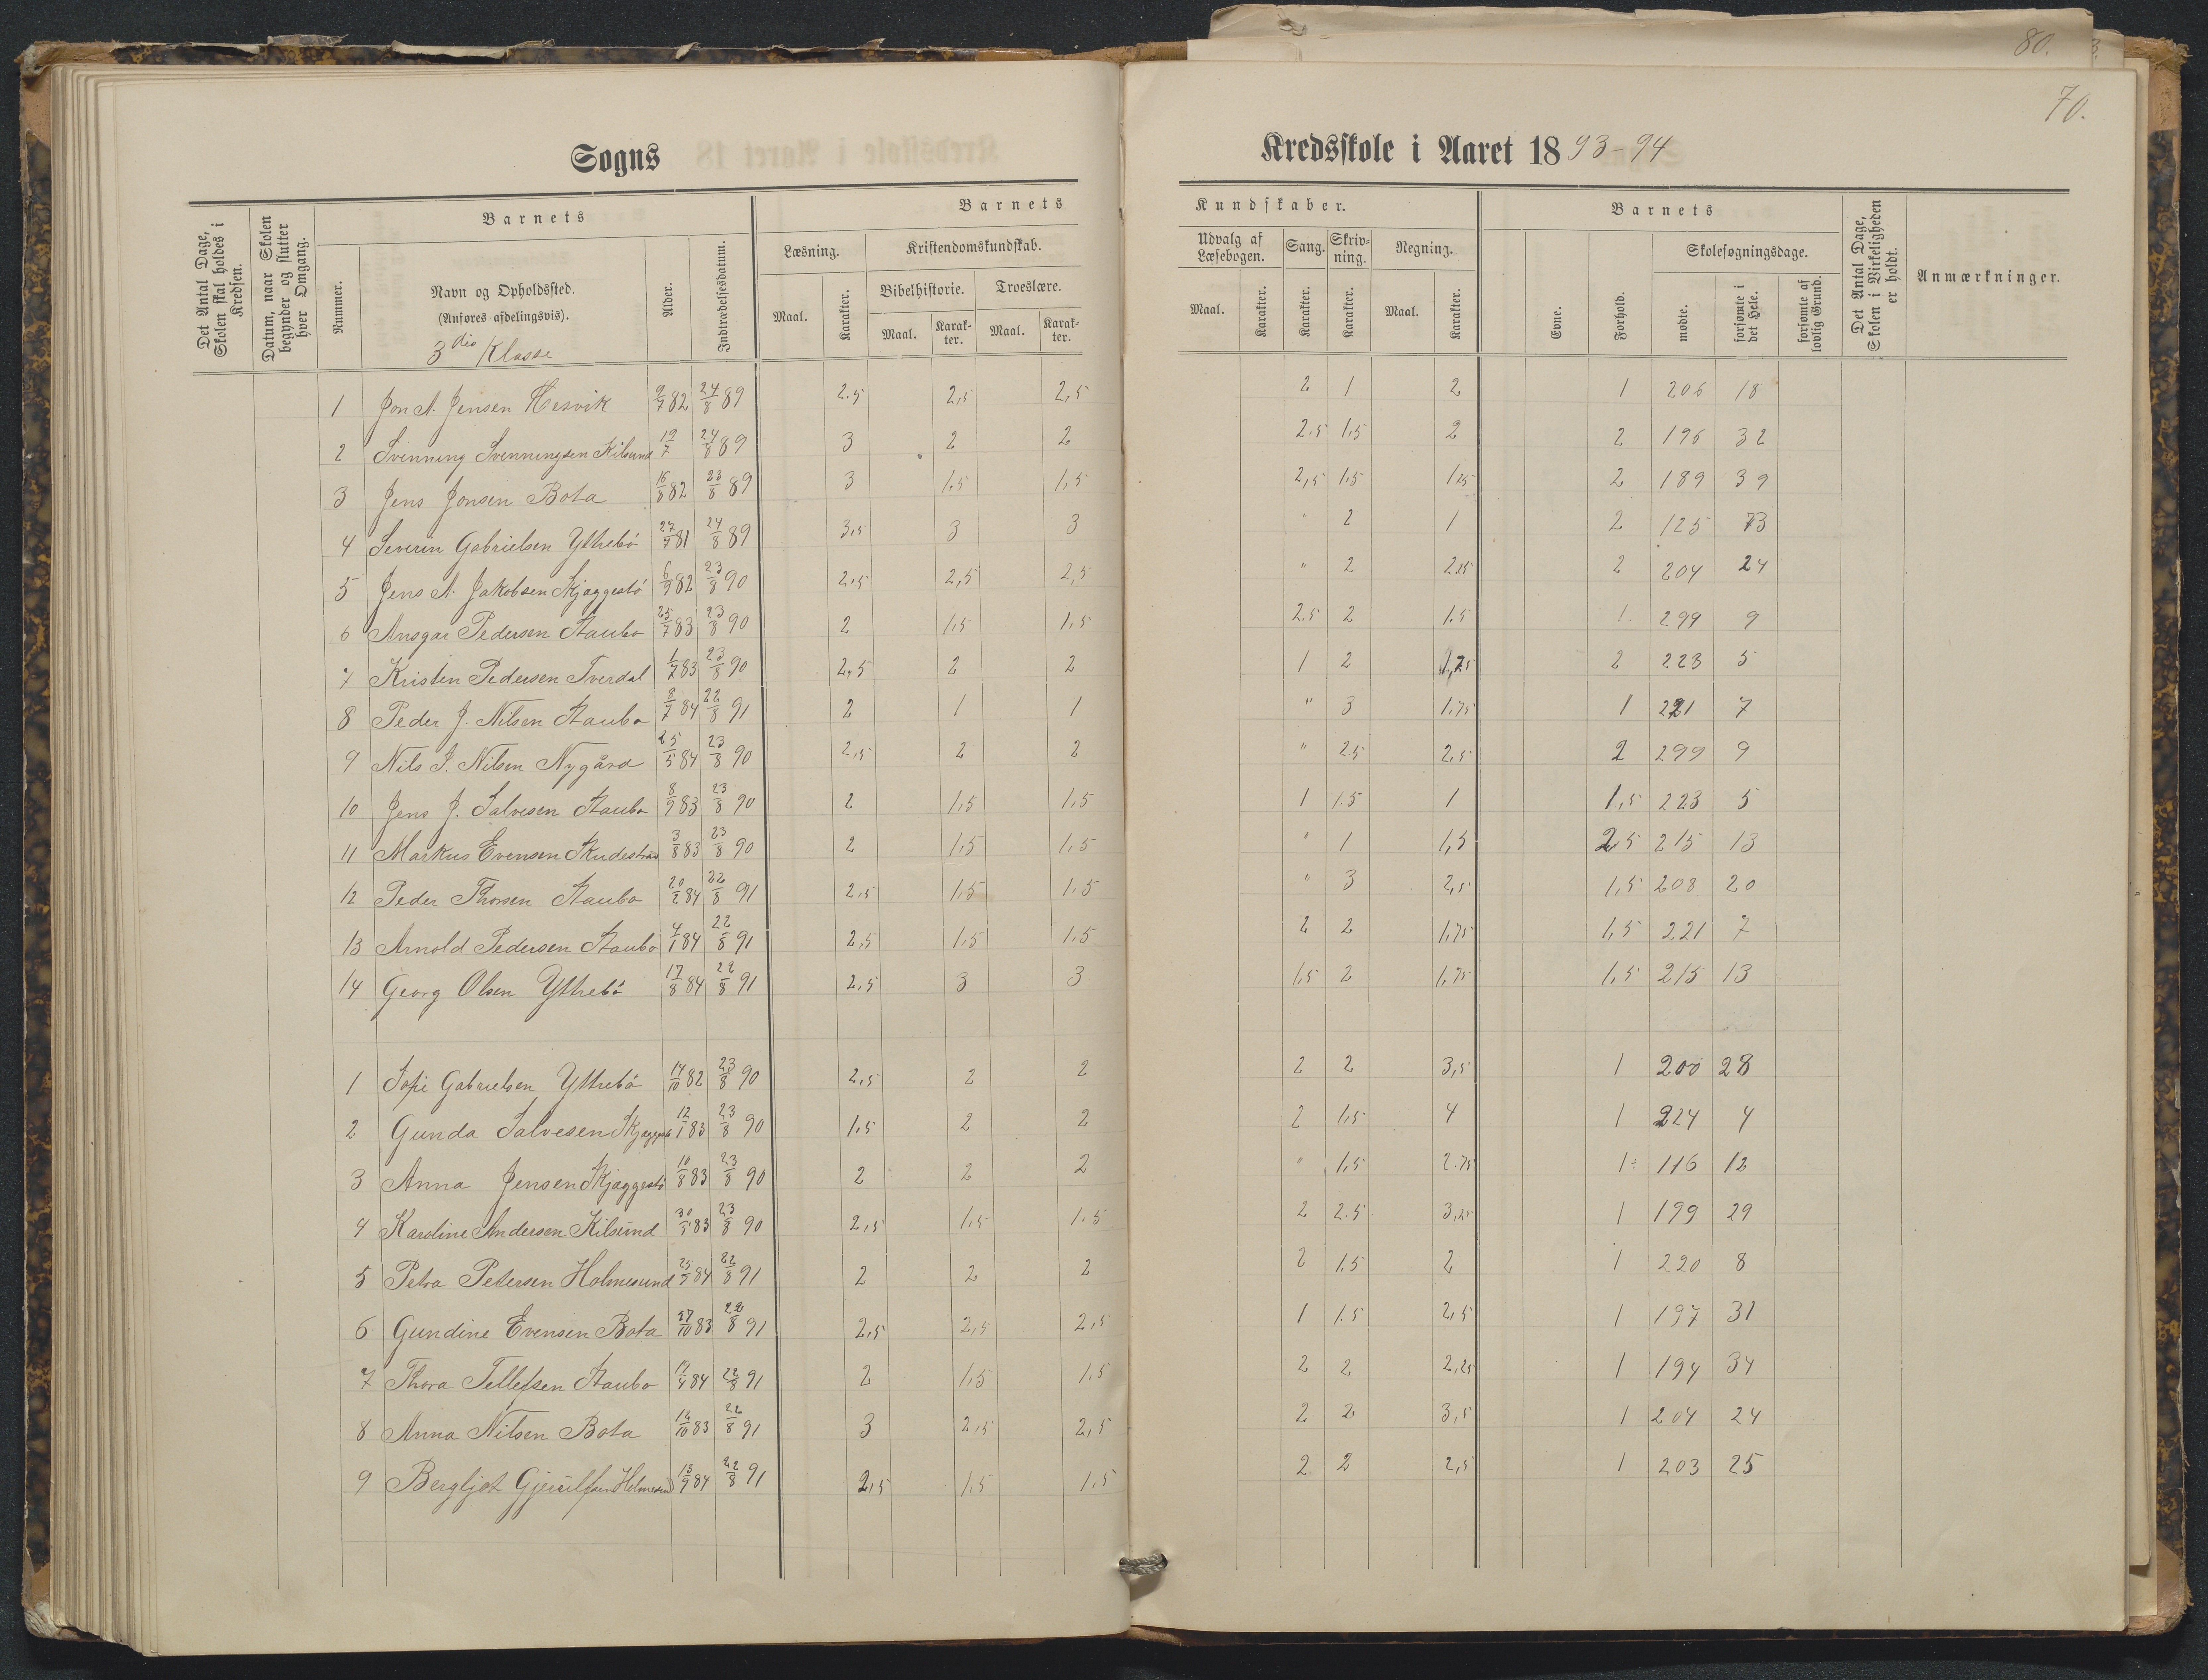 80.
70.
Sogns
Kredsskole i Aaret 1893-94
Det Antal Dage, Skolen skal holdes i Kredsen.
Datum, naar Skolen begynder og slutter hver Omgang.
Barnets
Nummer.
Navn og Opholdssted.
(Anføres afdelingsvis).
3die Klasse
Alder.
Indtrædelsesdatum.
Barnets
Læsning.
Maal.
Karakter.
Kristendomskundskab.
Bibelhistorie.
Troeslære.
Maal.
Karak-
ter.
Maal.
Karak-
ter.
Kundskaber.
Udvalg af Læsebogen.
Maal.
Karakter.
Sang.
Karakter.
Skriv-
ning.
Karakter.
Regning.
Maal.
Karakter.
Barnets
Evne.
Forhold.
Skolesøgningsdage.
mødte.
forsømte i det Hele.
forsømte af lovlig Grund.
Det Antal Dage, Skolen i Virkeligheden er holdt.
Anmærkninger.
1 Jon A. Jensen Hesvik 9/7 82 24/8 89 2.5 2,5 2,5 2 1 2 1 206 18
2 Svenning Svenningsen Kilsund 19/7 24/8 89 3 2 2 2.5 1.5 2 2 196 32
3 Jens Jonsen Bota 16/8 82 23/8 89 3 1.5 1,5 2,5 1.5 1.25 2 189 39
4 Severin Gabrielsen Yttrebö 27/7 81 24/8 89 3,5 3 3 " 2 1 2 125 73
5 Jens A. Jakobsen Skjaggestö 6/9 82 23/8 90 2.5 2,5 2,5 " 2 2.25 2 204 24
6 Ansgar Pedersen Staubo 25/7 83 23/8 90 2 1,5 1.5 2.5 2 1.5 1. 299 9
7 Kristen Pedersen Tverdal 1/7 83 23/8 90 2,5 2 2 1 2 1,25 2 223 5
8 Peder J. Nilsen Staubo 8/7 84 22/8 91 2 1 1 " 3 1.75 1 221 7
9 Nils J. Nilsen Nygård 25/5 84 23/8 90 2,5 2 2 " 2.5 2,5 2 299 9
10 Jens J. Salvesen Staubo 8/9 83 23/8 90 2 1,5 1,5 1 1.5 1 1,5 223 5
11 Markus Evensen 3/8 83 23/8 90 2 1.5 1.5 " 1 1,5 2.5 215 13
12 Peder Thorsen Staubo 20/2 84 22/8 91 2.5 1.5 1.5 " 3 2,5 1,5 208 20
13 Arnold Pedersen Staubo 4/1 84 22/8 91 2,5 1.5 1.5 2 2 1,75 1,5 221 7
14 Georg Olsen Yttrebö 17/8 84 22/8 91 2.5 3 3 1.5 2 1,75 1,5 215 13
1 Sofie Gabrielsen Yttrebö 14/10 82 23/8 90 2,5 2 2 2 2 3,5 1 200 28
2 Gunda Salvesen Skjaggestö 12/1 83 23/8 90 1.5 2 2 2 1.5 4 1 224 4
3 Anna Jensen Skjaggestö 10/8 83 23/8 90 2 2 2 " 1,5 2.75 1 116 12
4 Karoline Andersen Kilsund 30/5 83 23/8 90 2,5 1,5 1.5 2 2.5 3,25 1 199 29
5 Petra Petersen Holmesund 25/5 84 22/8 91 2 2 2 2 1.5 2 1 220 8
6 Gundine Evensen Bota 27/10 83 22/8 91 2,5 2,5 2,5 1 1.5 2,5 1 197 31
7 Thora Tellefsen Staubo 19/4 84 22/8 91 2 1,5 1.5 2 2 2,25 1 194 34
8 Anna Nilsen Bota 12/10 83 22/8 91 3 2,5 2,5 2 2 3,5 1 204 24
9 Bergljot Gjeruldsen Holmesund 13/9 84 22/8 91 2,5 1.5 1,5 2 2 2,5 1 203 25